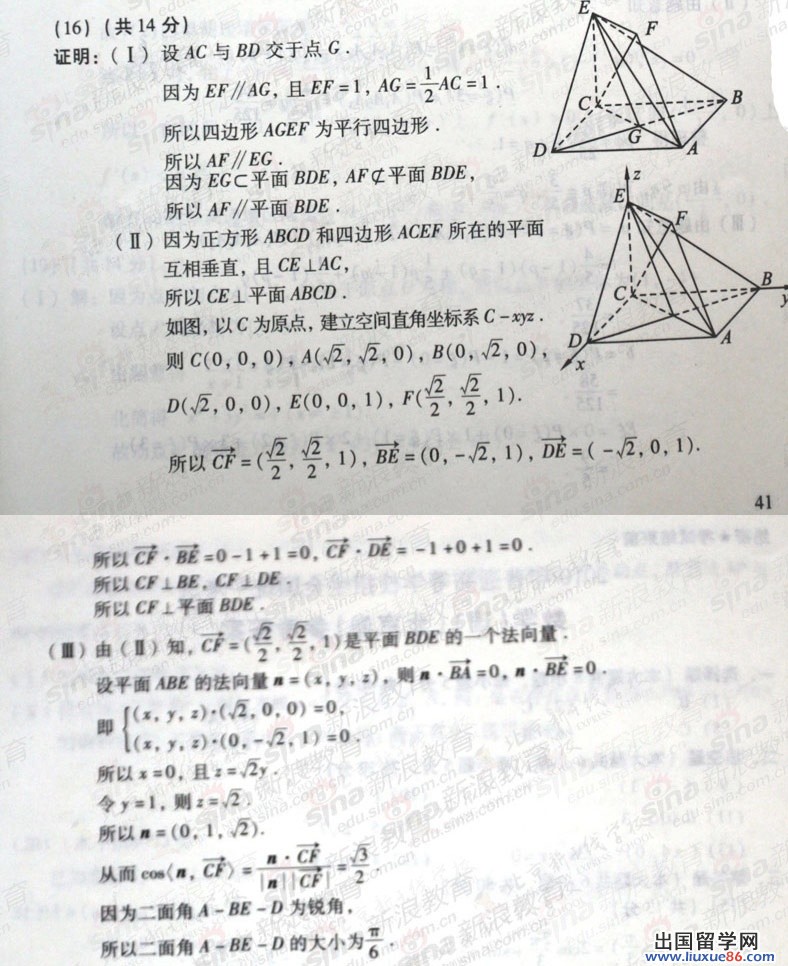 (16)(共14分)
证明:(Ⅰ)设AC与BD交于点G.
因为EF∥AG,且EF=1,AG=\frac{1}{2}AC=1.
所以四边形AGEF为平行四边形.
所以AF∥EG.
因为EG⊂平面BDE,AF⊄平面BDE,
所以AF∥平面BDE.
(Ⅱ)因为正方形ABCD和四边形ACEF所在的平面
互相垂直,且CE⊥AC,
所以CE⊥平面ABCD.
如图,以C为原点,建立空间直角坐标系C-xyz.
则C(0,0,0),A(√2,√2,0),B(0,√2,0),
D(√2,0,0),E(0,0,1),F(\frac{√2}{2},\frac{√2}{2},1).
所以\overrightarrow{CF}=(\frac{√2}{2},\frac{√2}{2},1),\overrightarrow{BE}=(0,-√2,1),\overrightarrow{DE}=(-√2,0,1).
E
F
C
B
G
D
A
z
E
F
C
B
y
D
A
x
41
所以\overrightarrow{CF}·\overrightarrow{BE}=0-1+1=0,\overrightarrow{CF}·\overrightarrow{DE}=-1+0+1=0.
所以CF⊥BE,CF⊥DE.
所以CF⊥平面BDE.
(Ⅲ)由(Ⅱ)知,\overrightarrow{CF}=(\frac{√2}{2},\frac{√2}{2},1)是平面BDE的一个法向量.
设平面ABE的法向量n=(x,y,z),则n·\overrightarrow{BA}=0,n·\overrightarrow{BE}=0.
即{(x,y,z)·(√2,0,0)=0,
(x,y,z)·(0,-√2,1)=0.
所以x=0,且z=√2y.
令y=1,则z=√2.
所以n=(0,1,√2).
从而cos⟨n,\overrightarrow{CF}⟩=\frac{n·\overrightarrow{CF}}{|n||\overrightarrow{CF}|}=\frac{√3}{2}
因为二面角A-BE-D为锐角,
所以二面角A-BE-D的大小为\frac{π}{6}.
出国留学网
www.liuxue86.com